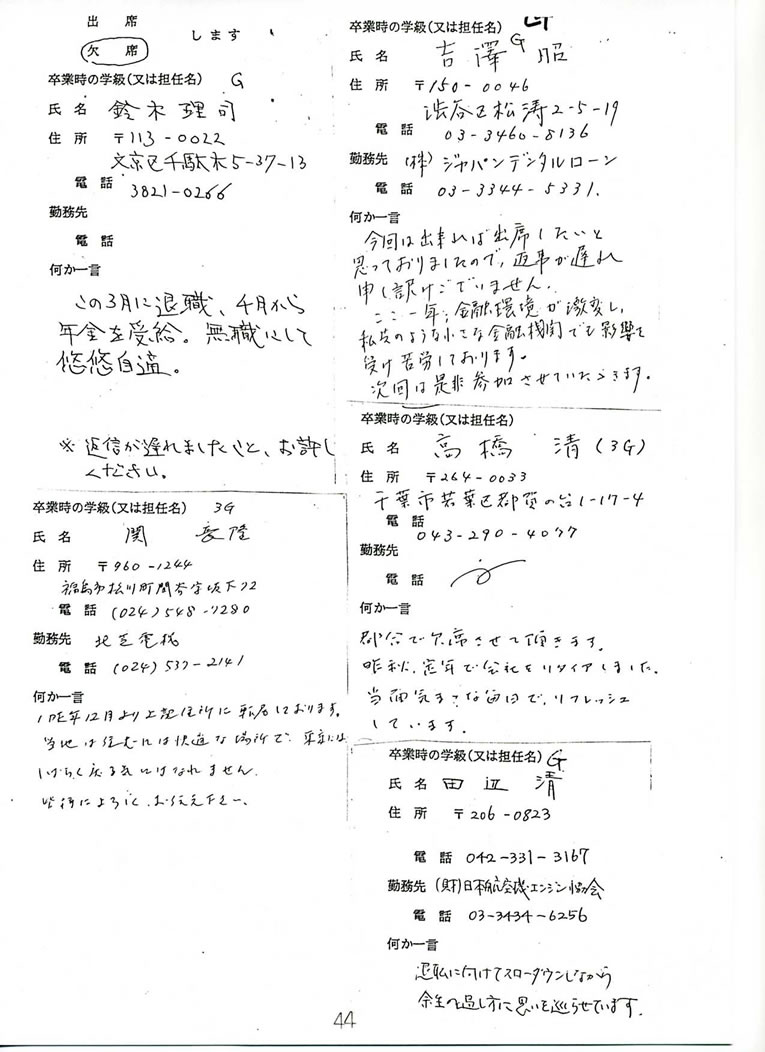 出 席
欠 席
します
卒業時の学級(又は担任名) G
氏 名 鈴木理司
住 所 〒113-0022
文京区千駄木5-37-13
電 話
3821-0266
勤務先
電 話
何か一言
この3月に退職、4月から
年金を受給。無職にして
悠悠自適。
※ 返信が遅れましたこと、お許し
ください。
卒業時の学級(又は担任名) 3G
氏 名 関
住 所 〒960-1244
福島市松川町関谷字坂下72
電 話 (024)548-7280
勤務先 北芝電機
電 話 (024)537-2141
何か一言
昨年12月より上記住所に転居しております。
当地は住むには快適な場所で、東京には
しばらく戻る気にはなれません。
皆様によろしくお伝え下さい。
卒業時の学級(又は担任名)
G
氏 名 吉澤 昭
住 所 〒150-0046
渋谷区松涛2-5-19
電 話 03-3460-8136
勤務先 (株)ジャパンデンタルローン
電 話 03-3344-5331.
何か一言
今回は出来れば出席したいと
思っておりましたので、返事が遅れ
申し訳けございません。
ここ一年、金融環境が激変し、
私共のような小さな金融機関でも影響を
受け苦労しております。
次回は是非参加させていただきます。
卒業時の学級(又は担任名)
氏 名 高橋 清(3G)
住 所 〒264-0033
千葉市若葉区都賀の台1-17-4
電 話
043-290-4077
勤務先
電 話
何か一言
都合で欠席させて頂きます。
昨秋、定年で会社をリタイアしました。
当面気ままな毎日で、リフレッシュ
しています。
卒業時の学級(又は担任名) G
氏 名 田辺 清
住 所 〒206-0823
電 話 042-331-3167
勤務先 (財)日本航空機エンジン協会
電 話 03-3434-6256
何か一言
退転に向けてスローダウンしながら
余生の過し方に思いを巡らせています。
44